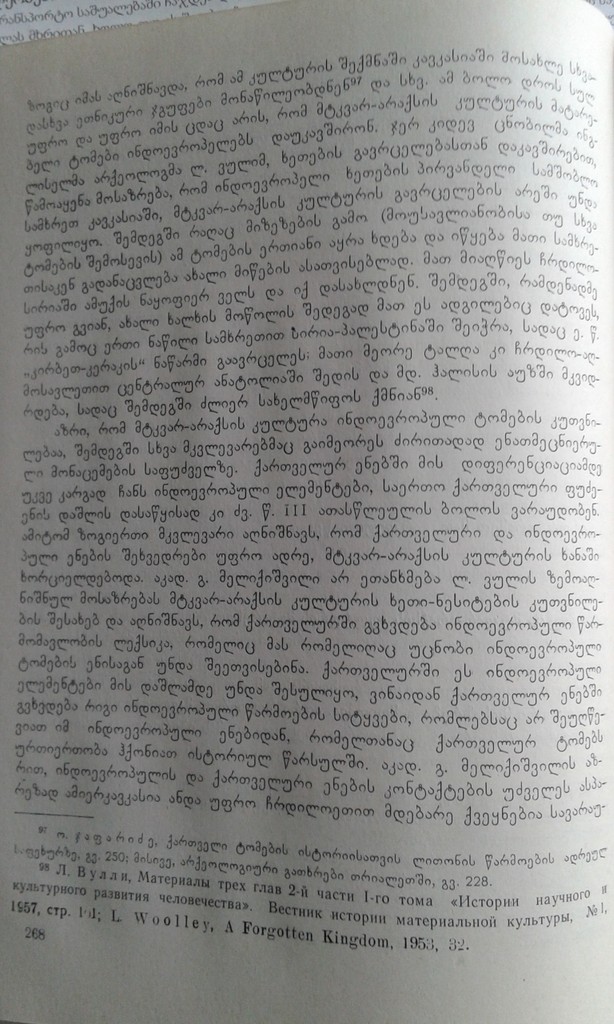 ზოგიც იმას აღნიშნავდა, რომ ამ კულტურის შექმნაში კავკასიაში მოსახლე სხვა-
დასხვა ეთნიკური ჯგუფები მონაწილეობდნენ⁹⁷ და სხვ. ამ ბოლო დროს სულ
უფრო და უფრო იმის ცდაც არის, რომ მტკვარ-არაქსის კულტურის მატარე-
ბელი ტომები ინდოევროპელებს დაუკავშირონ. ჯერ კიდევ ცნობილმა ინგ-
ლისელმა არქეოლოგმა ლ. ვულიმ, ხეთების გავრცელებასთან დაკავშირებით,
წამოაყენა მოსაზრება, რომ ინდოევროპელი ხეთების პირვანდელი სამშობლო
სამხრეთ კავკასიაში, მტკვარ-არაქსის კულტურის გავრცელების არეში უნდა
ყოფილიყო. შემდეგში რაღაც მიზეზების გამო (მოუსავლიანობისა თუ სხვა
ტომების შემოსევის) ამ ტომების ერთიანი აყრა ხდება და იწყება მათი სამხრე-
თისაკენ გადანაცვლება ახალი მიწების ასათვისებლად. მათ მიაღწიეს ჩრდილო-
სირიაში ამუქის ნაყოფიერ ველს და იქ დასახლდნენ. შემდეგში, რამდენადმე
უფრო გვიან, ახალი ხალხის მოწოლის შედეგად მათ ეს ადგილებიც დატოვეს,
რის გამოც ერთი ნაწილი სამხრეთით სირია-პალესტინაში შეიჭრა, სადაც ე. წ.
„კირბეთ-კერაკის“ ნაწარმი გაავრცელეს; მათი მეორე ტალღა კი ჩრდილო-აღ-
მოსავლეთით ცენტრალურ ანატოლიაში შედის და მდ. ჰალისის აუზში მკვიდ-
რდება, სადაც შემდეგში ძლიერ სახელმწიფოს ქმნიან⁹⁸.
აზრი, რომ მტკვარ-არაქსის კულტურა ინდოევროპული ტომების კუთვნი-
ლებაა, შემდეგში სხვა მკვლევარებმაც გაიმეორეს ძირითადად ენათმეცნიერუ-
ლი მონაცემების საფუძველზე. ქართველურ ენებში მის დიფერენციაციამდე
უკვე კარგად ჩანს ინდოევროპული ელემენტები, საერთო ქართველური ფუძე-
ენის დაშლის დასაწყისად კი ძვ. წ. III ათასწლეულის ბოლოს ვარაუდობენ.
ამიტომ ზოგიერთი მკვლევარი აღნიშნავს, რომ ქართველური და ინდოევრო-
პული ენების შეხვედრები უფრო ადრე, მტკვარ-არაქსის კულტურის ხანაში
ხორციელდებოდა. აკად. გ. მელიქიშვილი არ ეთანხმება ლ. ვულის ზემოაღ-
ნიშნულ მოსაზრებას მტკვარ-არაქსის კულტურის ხეთი-ნესიტების კუთვნილე-
ბის შესახებ და აღნიშნავს, რომ ქართველურში გვხვდება ინდოევროპული წარ-
მომავლობის ლექსიკა, რომელიც მას რომელიღაც უცნობი ინდოევროპული
ტომების ენისაგან უნდა შეეთვისებინა. ქართველურში ეს ინდოევროპული
ელემენტები მის დაშლამდე უნდა შესულიყო, ვინაიდან ქართველურ ენებში
გვხვდება რიგი ინდოევროპული წარმოების სიტყვები, რომლებსაც არ შეუღწე-
ვიათ იმ ინდოევროპული ენებიდან, რომელთანაც ქართველურ ტომებს
ურთიერთობა ჰქონიათ ისტორიულ წარსულში. აკად. გ. მელიქიშვილის აზ-
რით, ინდოევროპულის და ქართველური ენების კონტაქტების უძველეს ასპა-
რეზად ამიერკავკასია ანდა უფრო ჩრდილოეთით მდებარე ქვეყნებია სავარაუ-
⁹⁷ ო. ჯაფარიძე, ქართველი ტომების ისტორიისათვის ლითონის წარმოების ადრეულ
საფეხურზე, გვ. 250; მისივე, არქეოლოგიური გათხრები თრიალეთში, გვ. 228.
⁹⁸ Л. Вулли, Материалы трех глав 2-й части I-го тома «Истории научного и
культурного развития человечества». Вестник истории материальной культуры, №1,
1957, стр. L. Woolley, A Forgotten Kingdom, 1953, 32.
268